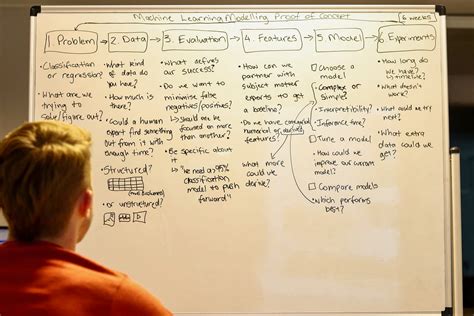 Machine Learning Modelling Proof of Concept
6 weeks
1. Problem
2. Data
3. Evaluation
4. Features
5. Model
6 Experiments
• Classification
or regression?
• What are we
trying to
solve/figure out?
• What kind
of data do
you have?
• How much is
there?
• Could a human
expert find something
out from it with
enough time?
• Structured?
• or unstructured?
• What defines
our success?
• Do we want to
minimise false
negatives/positives?
↳ should one be
focused on more
than another?
• Be specific about
it
↳ "we need a >95%
classification
model to push
forward"
• How can we
partner with
subject matter
experts to get
a baseline?
• Do we have categorical
numerical or derived
features?
• What more
could we
derive?
Choose a
model
• Complex or
Simple?
• Interpretibility?
• Inference time?
Tune a model
• How could we
improve our current
model?
Compare models
• Which performs
best?
• How long do
we have?
↳ timeline?
• What doesn't
work?
• What could we try
next?
• What extra
data could we
get?